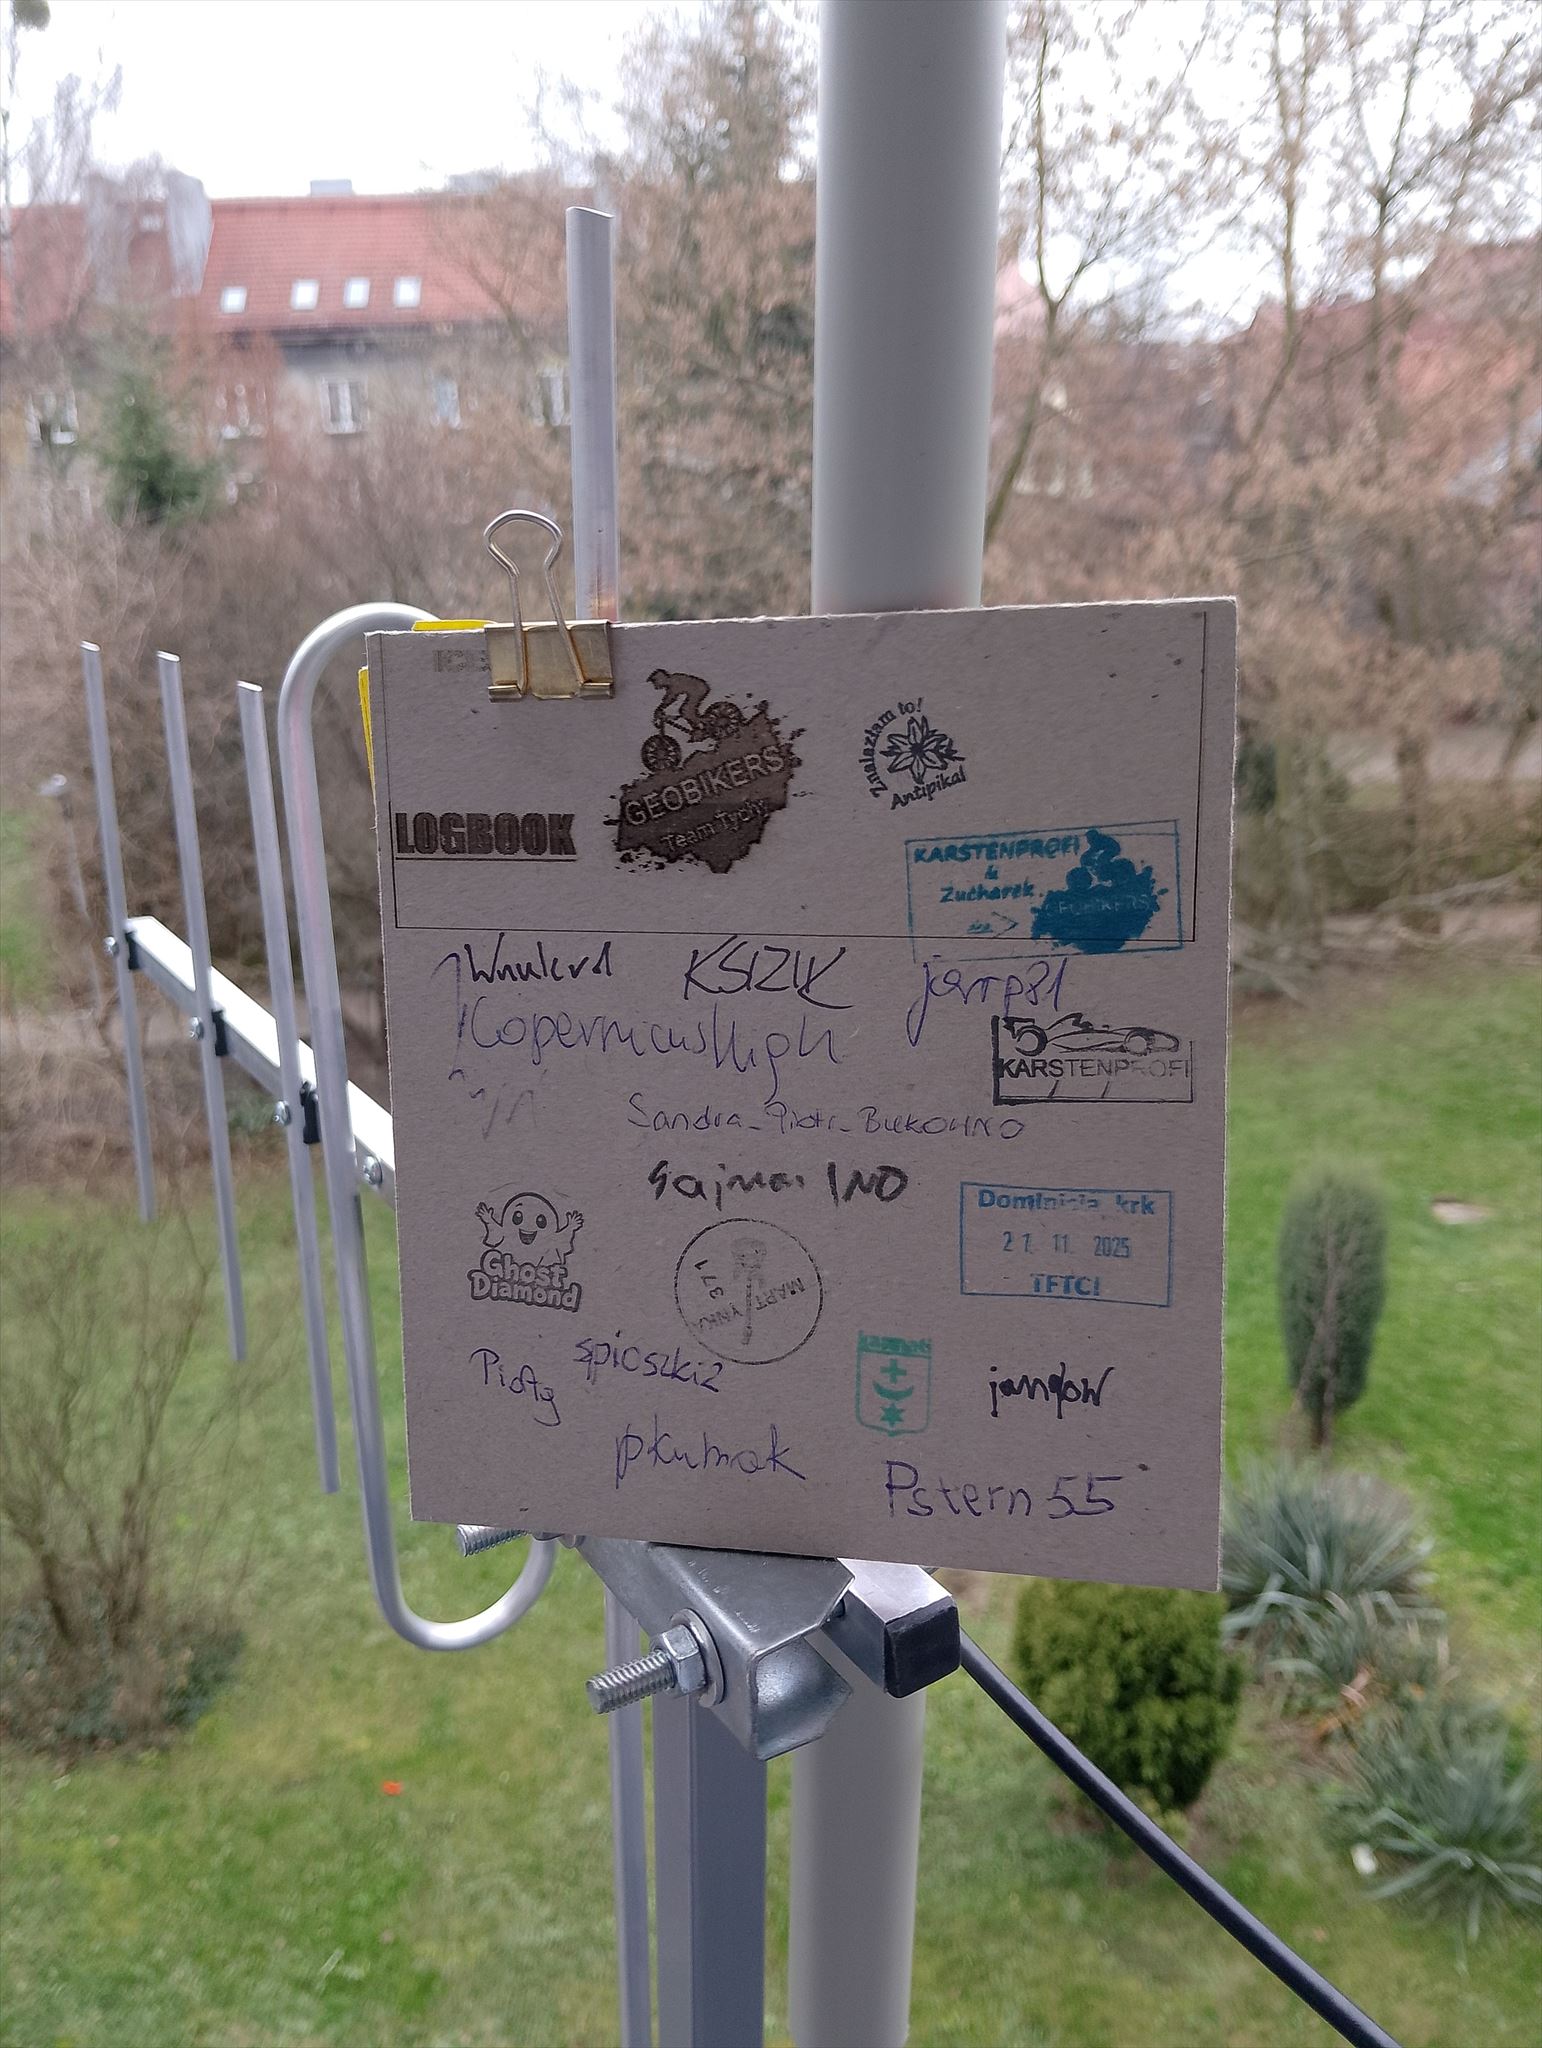 LOGBOOK
GEOBIKERS
Team Tychy
Znalazłam to!
Antipikal
KARSTENPROFI
&
Zucharek
GEOBIKERS
KSIZYK
jarrp81
CopernicusHigh
KARSTENPROFI
Sandra_Piotr_BUKOWNO
INO
Ghost
Diamond
MARTYNKA
371
11. 2025
TFTCI
spioszki2
pkubiak
Pstern55